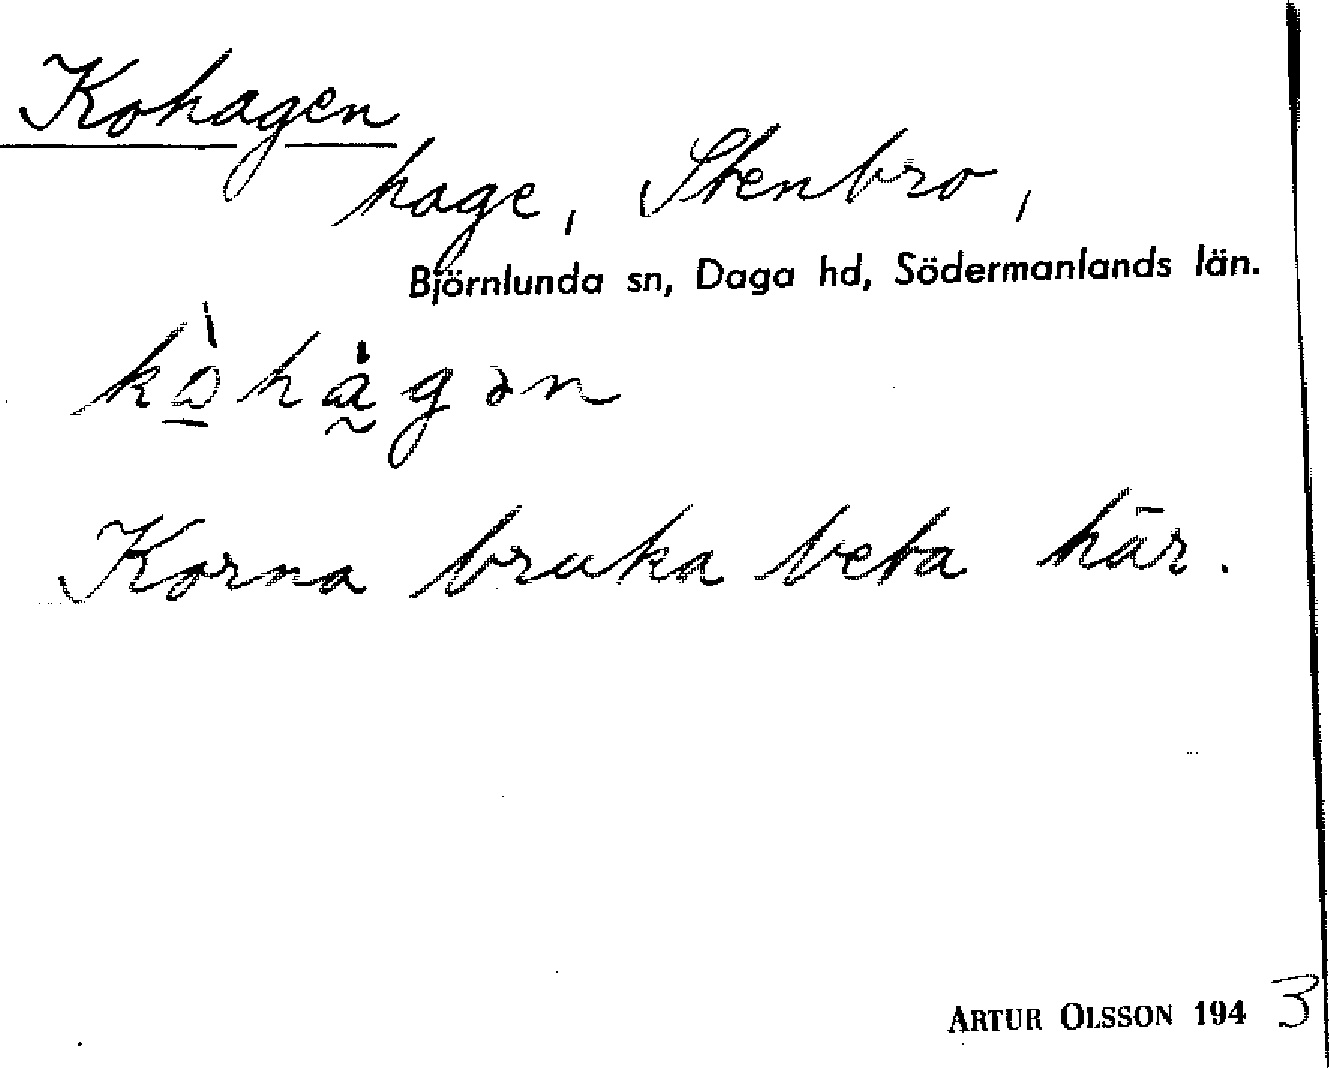 Kohagen
hage, Stenbro,
Björnlunda sn, Daga hd, Södermanlands län.
kòhàgən
Korna bruka beta här.
ARTUR OLSSON 1943